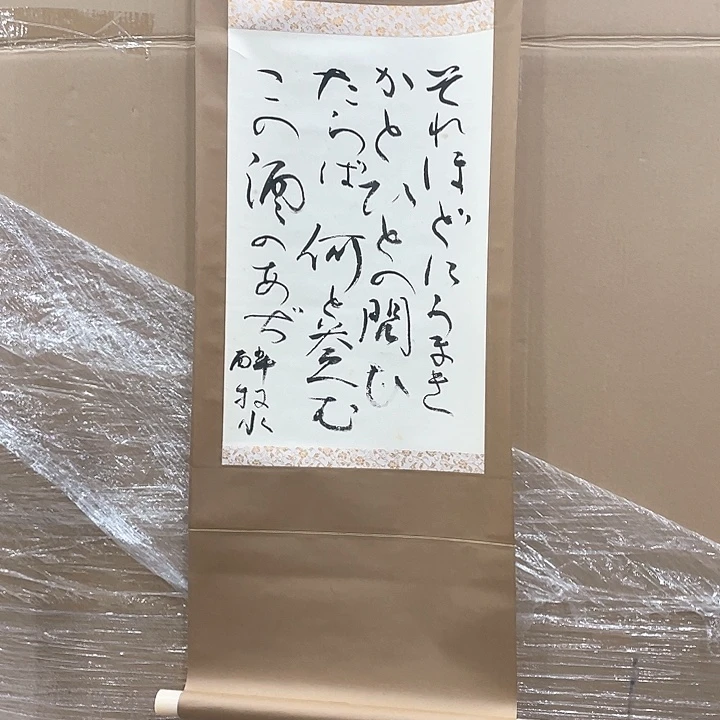 それほどにうまき
かとひとの問ひ
たらば何と答へむ
この酒のあぢ
酔牧水